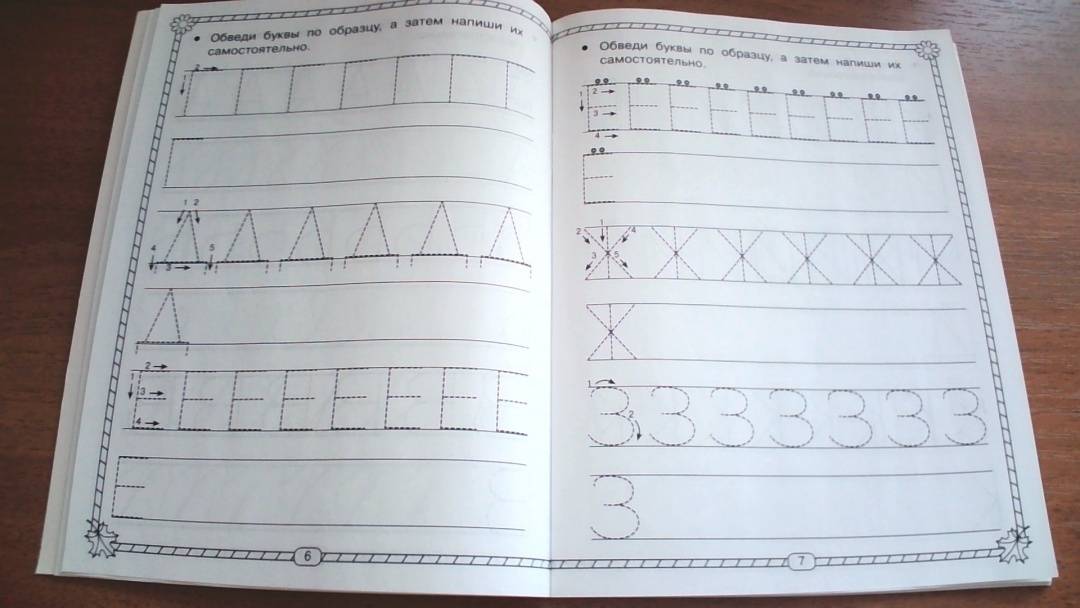 • Обведи буквы по образцу, а затем напиши их
самостоятельно.
2
Г Г Г Г Г Г Г
Г
1 2
4 3 5
Д Д Д Д Д Д
Д
1 2 3 4
Е Е Е Е Е Е Е Е
Е
6
• Обведи буквы по образцу, а затем напиши их
самостоятельно.
1 2 3 4
Ё Ё Ё Ё Ё Ё Ё Ё Ё
Ё
2 1 4
3 5
Ж Ж Ж Ж Ж Ж
Ж
1 2
З З З З З З З
З
7